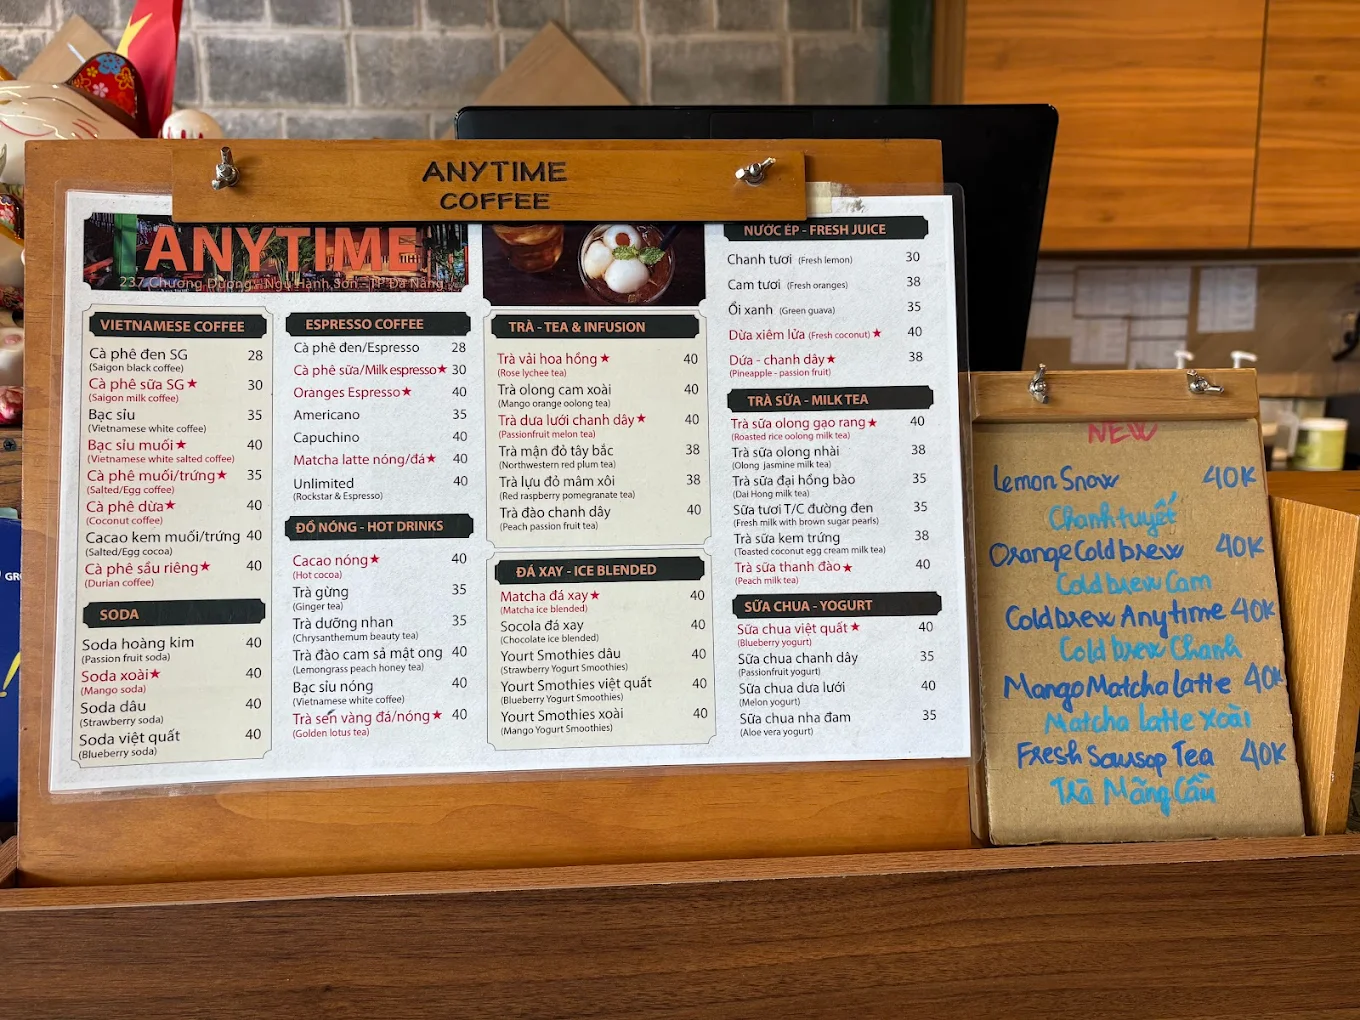 ANYTIME
COFFEE
ANYTIME
237 Chương Dương - Ngũ Hành Sơn - TP Đà Nẵng
VIETNAMESE COFFEE
Cà phê đen SG 28
(Saigon black coffee)
Cà phê sữa SG ★ 30
(Saigon milk coffee)
Bạc sỉu 35
(Vietnamese white coffee)
Bạc sỉu muối ★ 40
(Vietnamese white salted coffee)
Cà phê muối/trứng ★ 35
(Salted/Egg coffee)
Cà phê dừa ★ 40
(Coconut coffee)
Cacao kem muối/trứng 40
(Salted/Egg cocoa)
Cà phê sầu riêng ★ 40
(Durian coffee)
SODA
Soda hoàng kim 40
(Passion fruit soda)
Soda xoài ★ 40
(Mango soda)
Soda dâu 40
(Strawberry soda)
Soda việt quất 40
(Blueberry soda)
ESPRESSO COFFEE
Cà phê đen/Espresso 28
Cà phê sữa/Milk espresso ★ 30
Oranges Espresso ★ 40
Americano 35
Capuchino 40
Matcha latte nóng/đá ★ 40
Unlimited 40
(Rockstar & Espresso)
ĐỒ NÓNG - HOT DRINKS
Cacao nóng ★ 40
(Hot cocoa)
Trà gừng 35
(Ginger tea)
Trà dưỡng nhan 35
(Chrysanthemum beauty tea)
Trà đào cam sả mật ong 40
(Lemongrass peach honey tea)
Bạc sỉu nóng 40
(Vietnamese white coffee)
Trà sen vàng đá/nóng ★ 40
(Golden lotus tea)
TRÀ - TEA & INFUSION
Trà vải hoa hồng ★ 40
(Rose lychee tea)
Trà olong cam xoài 40
(Mango orange oolong tea)
Trà dưa lưới chanh dây ★ 40
(Passionfruit melon tea)
Trà mận đỏ tây bắc 38
(Northwestern red plum tea)
Trà lựu đỏ mâm xôi 38
(Red raspberry pomegranate tea)
Trà đào chanh dây 40
(Peach passion fruit tea)
ĐÁ XAY - ICE BLENDED
Matcha đá xay ★ 40
(Matcha ice blended)
Socola đá xay 40
(Chocolate ice blended)
Yourt Smothies dâu 40
(Strawberry Yogurt Smoothies)
Yourt Smothies việt quất 40
(Blueberry Yogurt Smoothies)
Yourt Smothies xoài 40
(Mango Yogurt Smoothies)
NƯỚC ÉP - FRESH JUICE
Chanh tươi (Fresh lemon) 30
Cam tươi (Fresh oranges) 38
Ổi xanh (Green guava) 35
Dừa xiêm lửa (Fresh coconut) ★ 40
Dứa - chanh dây ★ 38
(Pineapple - passion fruit)
TRÀ SỮA - MILK TEA
Trà sữa olong gạo rang ★ 40
(Roasted rice oolong milk tea)
Trà sữa olong nhài 38
(Olong jasmine milk tea)
Trà sữa đại hồng bào 35
(Dai Hong milk tea)
Sữa tươi T/C đường đen 35
(Fresh milk with brown sugar pearls)
Trà sữa kem trứng 38
(Toasted coconut egg cream milk tea)
Trà sữa thanh đào ★ 40
(Peach milk tea)
SỮA CHUA - YOGURT
Sữa chua việt quất ★ 40
(Blueberry yogurt)
Sữa chua chanh dây 35
(Passionfruit yogurt)
Sữa chua dưa lưới 40
(Melon yogurt)
Sữa chua nha đam 35
(Aloe vera yogurt)
NEW
Lemon Snow 40K
Chanh tuyết
Orange Cold brew 40K
Cold brew Cam
Cold brew Anytime 40K
Cold brew Chanh
Mango Matcha latte 40K
Matcha latte xoài
Fresh Soursop Tea 40K
Trà Mãng Cầu